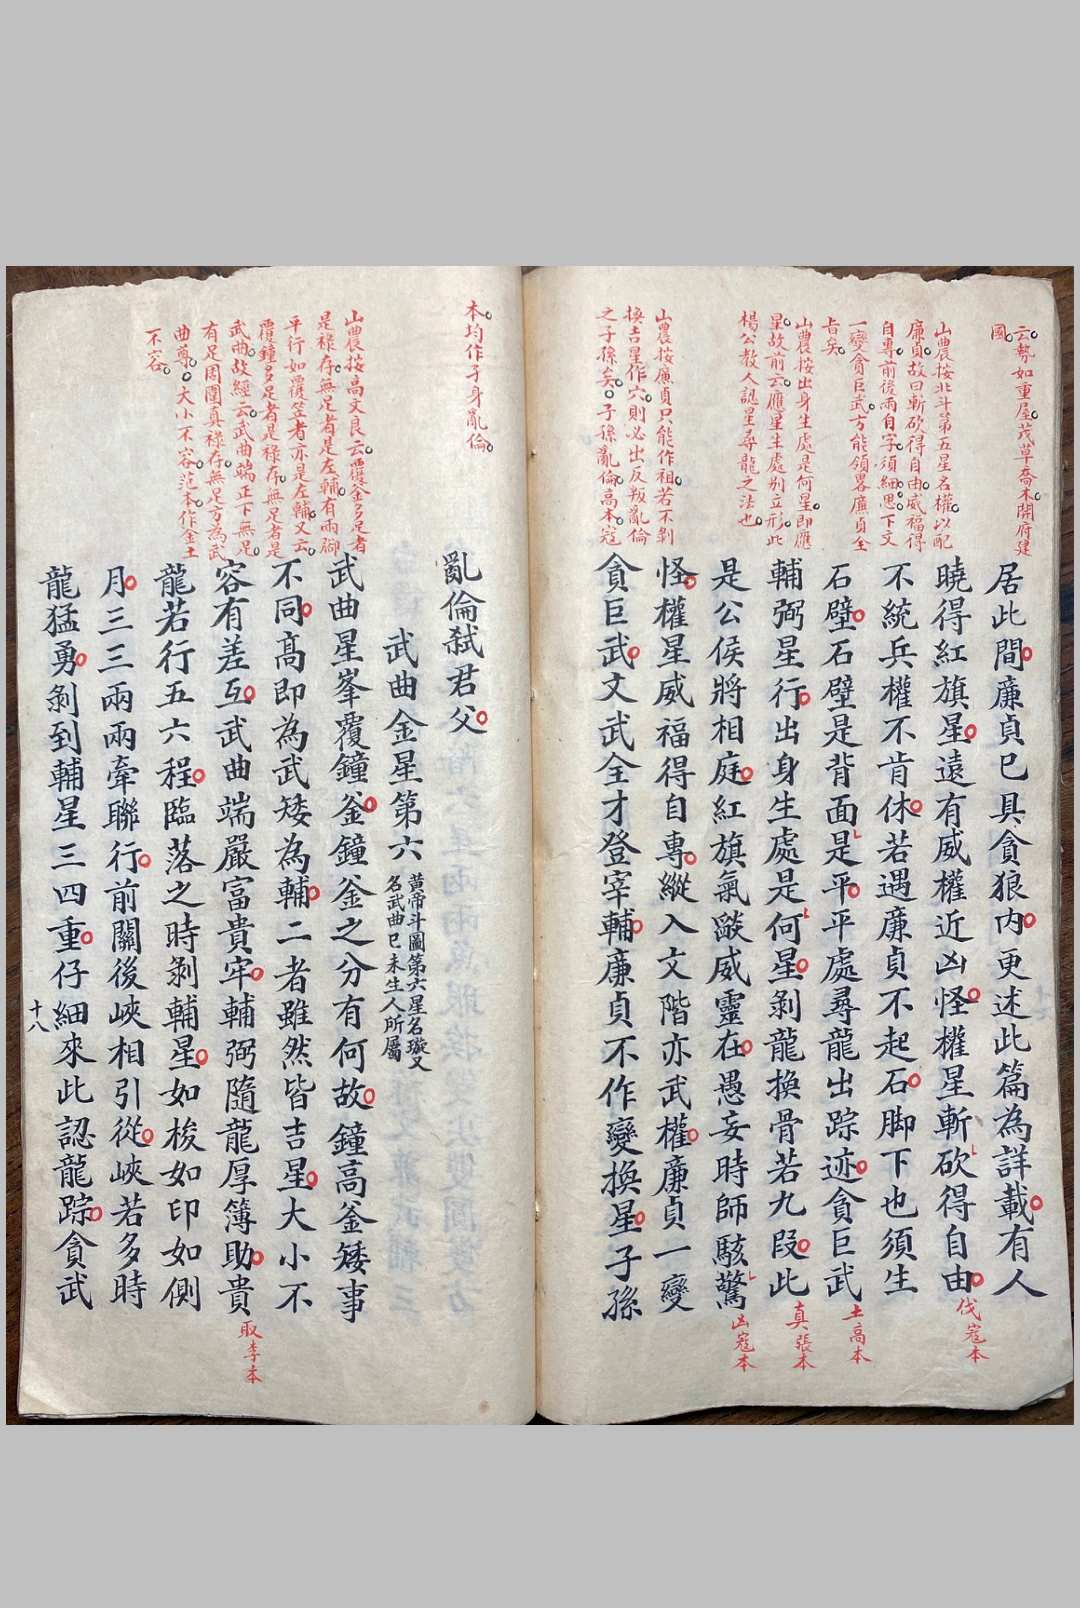 云勢如重屋茂草喬木開府建
國
山農按北斗第五星名權以配
廉貞故曰斬砍得自由威福得
自專前後兩自字須細思下文
一變貪巨武方能領畧廉貞全
旨矣
山農按出身生處是何星即應
星故前云應星生處別立形此
楊公教人認星尋龍之法也
山農按廉貞只能作祖若不剝
換吉星作穴則必出反叛亂倫
之子孫矣子孫亂倫高本寇
居此間廉貞已具貪狼內更述此篇為詳載有人
曉得紅旗星遠有威權近凶怪權星斬砍得自由
伐寇本
不統兵權不肯休若遇廉貞不起石脚下也須生
石壁石壁是背面是平平處尋龍出踪迹貪巨武
土高本
輔弼星行出身生處是何星剝龍換骨若九段此
真張本
是公侯將相庭紅旗氣燄威靈在愚妄時師駭驚
凶寇本
怪權星威福得自專縱入文階亦武權廉貞一變
貪巨武文武全才登宰輔廉貞不作變換星子孫
本均作子身亂倫
山農按高文良云覆釜多足者
是祿存無足者是左輔有兩脚
平行如覆笠者亦是左輔又云
覆鐘多足者是祿存無足者是
武曲故經云武曲端正下無足
有足周圍真祿存無足方為武
曲尊大小不容范本作金土
不容
亂倫弒君父
武曲金星第六
黃帝斗圖第六星名璇又
名武曲巳未生人所屬
武曲星峯覆鐘釜鐘釜之分有何故鐘高釜矮事
不同高即為武矮為輔二者雖然皆吉星大小不
容有差互武曲端嚴富貴牢輔弼隨龍厚簿助貴
取李本
龍若行五六程臨落之時剝輔星如梭如印如側
月三三兩兩牽聯行前關後峽相引從峽若多時
龍猛勇剝到輔星三四重仔細來此認龍踪貪武
十八